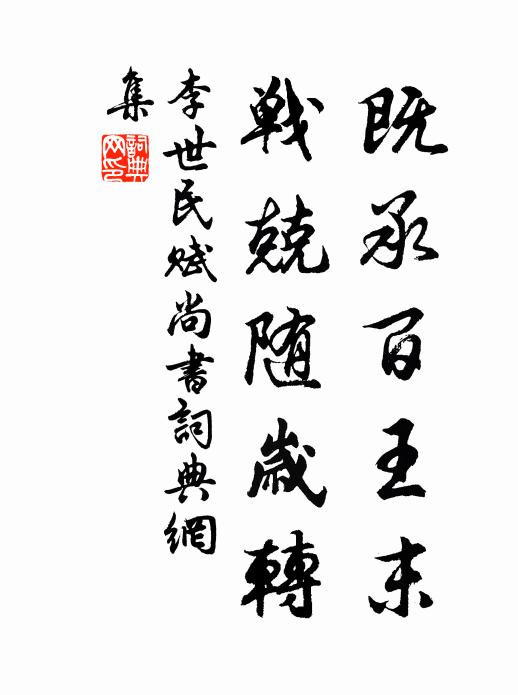 既承百王末
戦兢随歳轉
李世民賦尚書詞典網
集
詞典網印